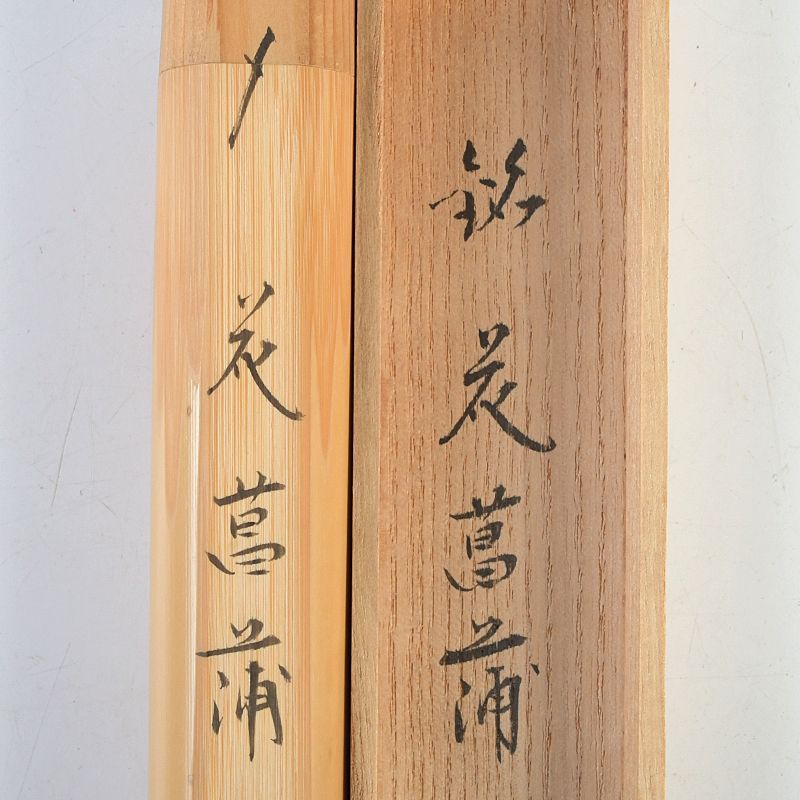 銘 花菖蒲
〆 花菖蒲